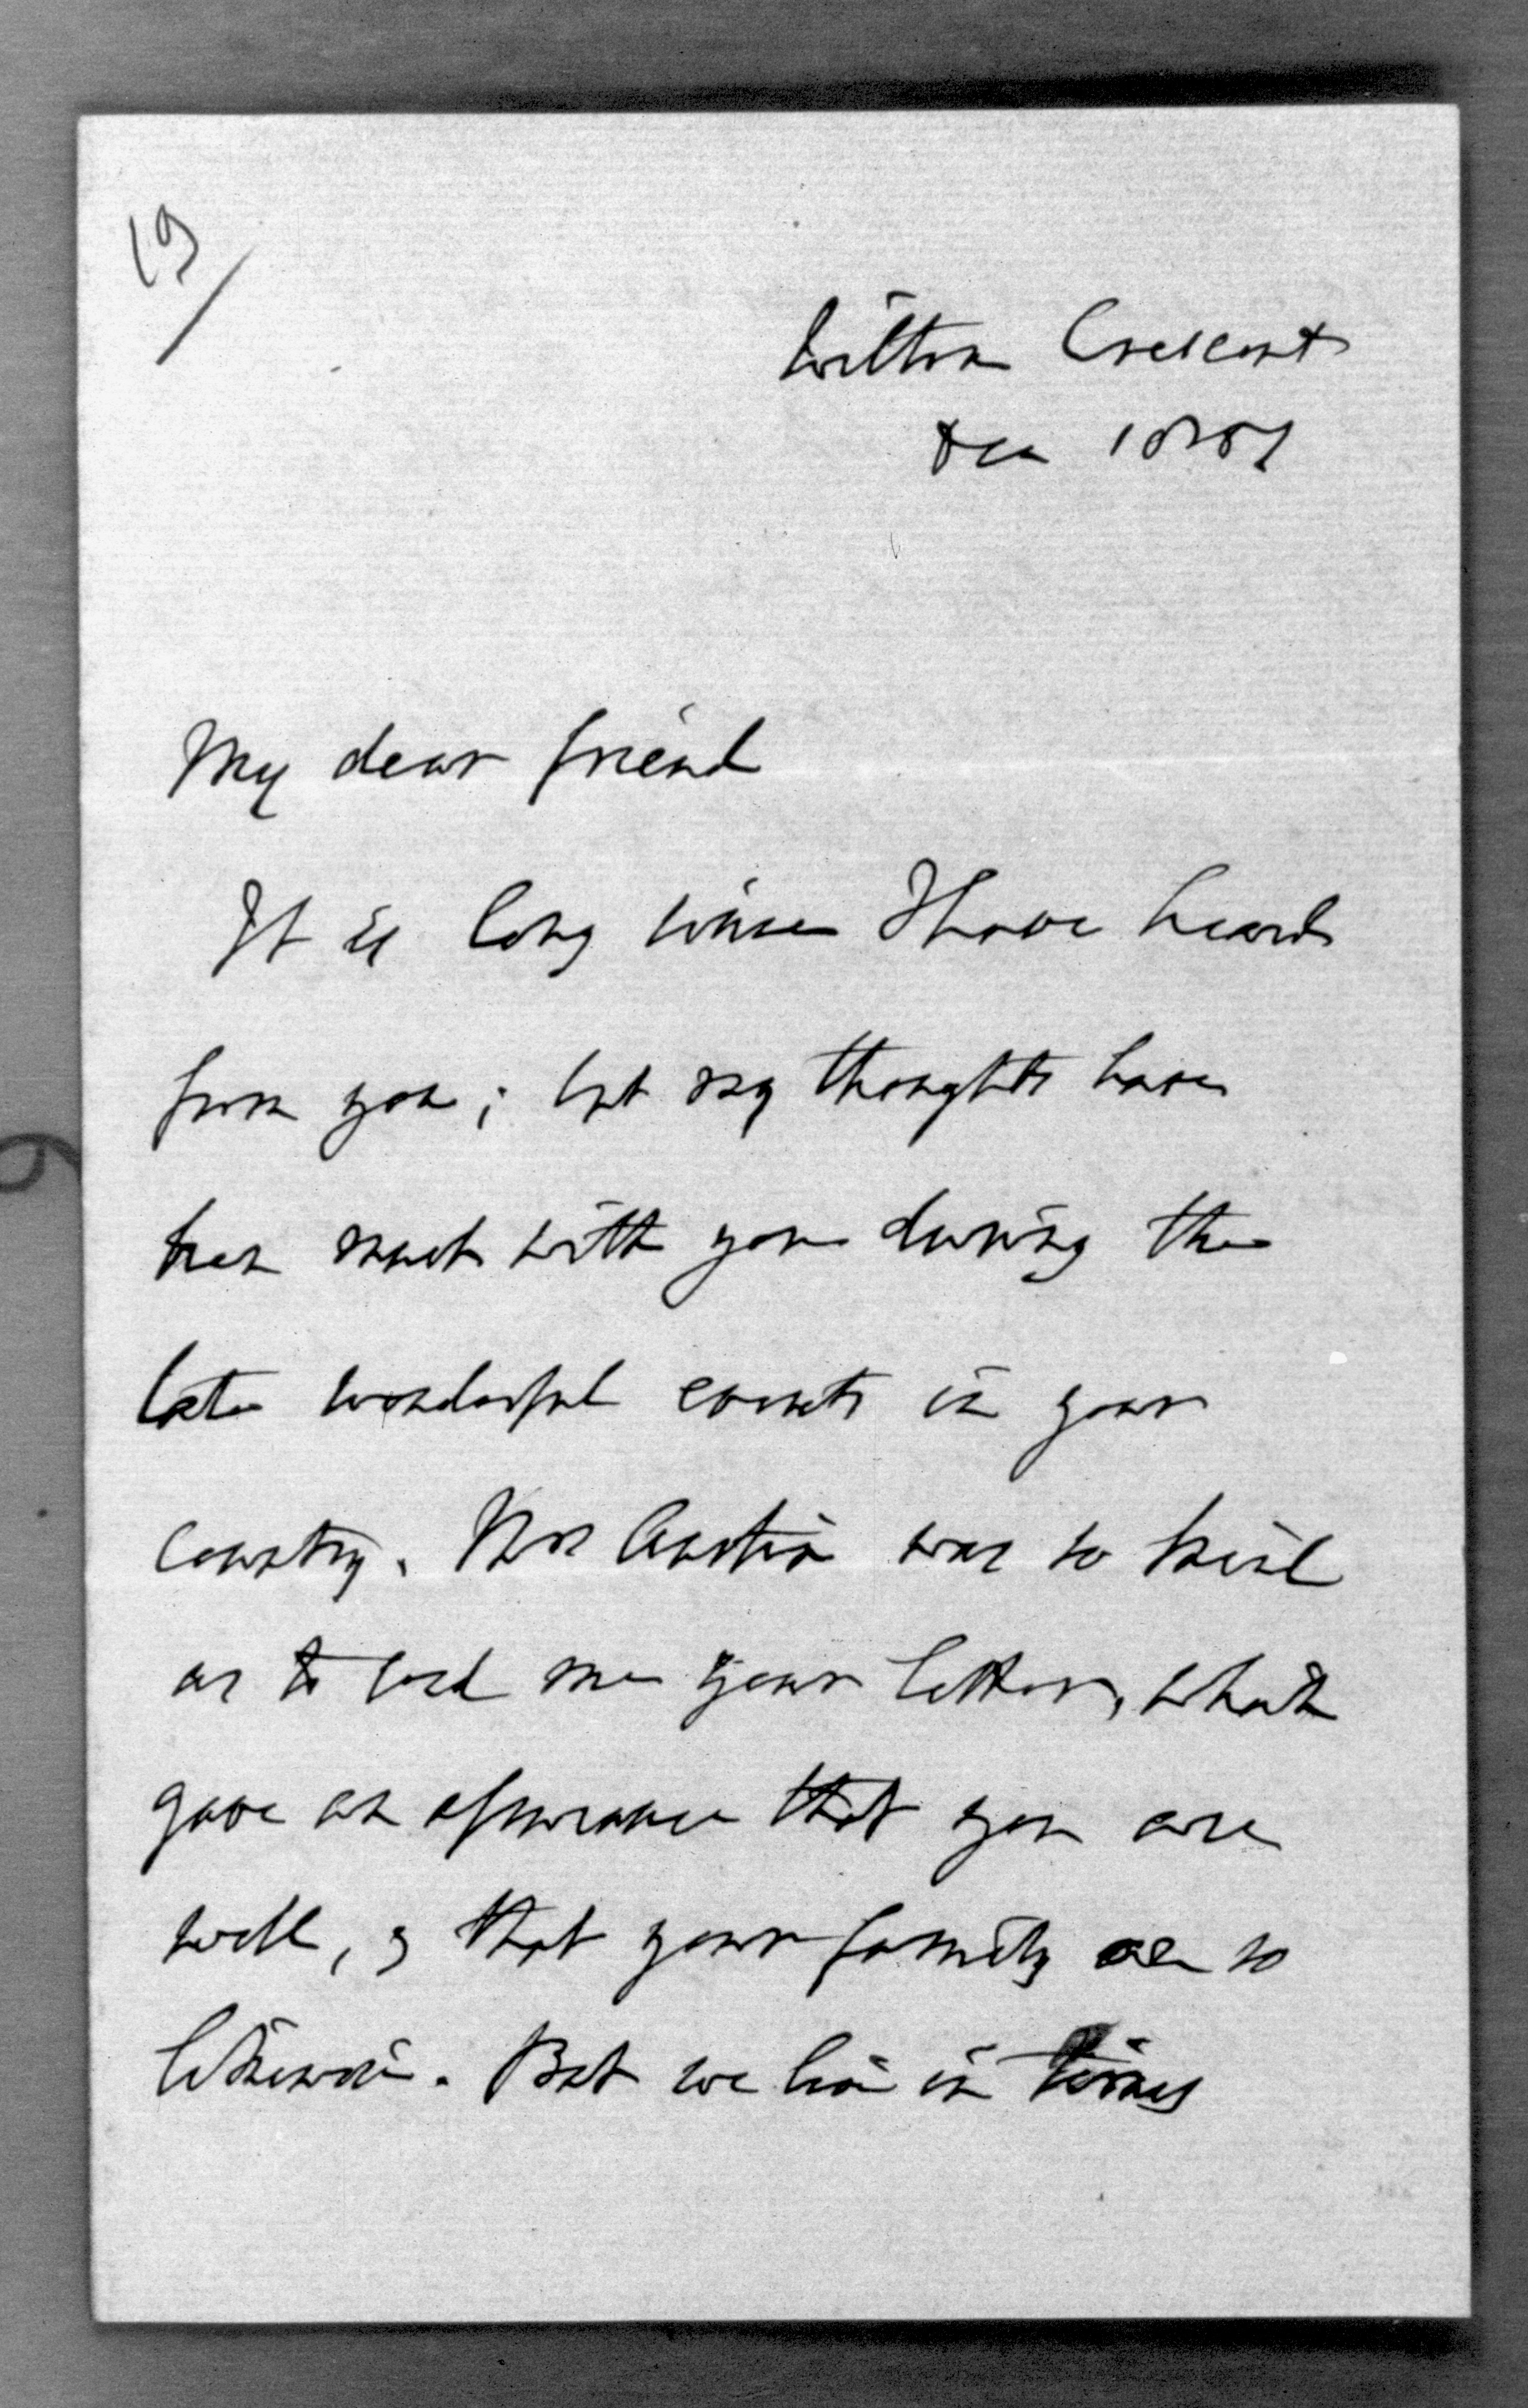 19/
Wilton Crescent
Dec 1851
My dear friend
It is long since I have heard
from you; but my thoughts have
been much with you during the
late wonderful events in your
country. Mrs Austin was so kind
as to send me your letter, which
gave an assurance that you are
well, & that your family are so
likewise. But we live in times